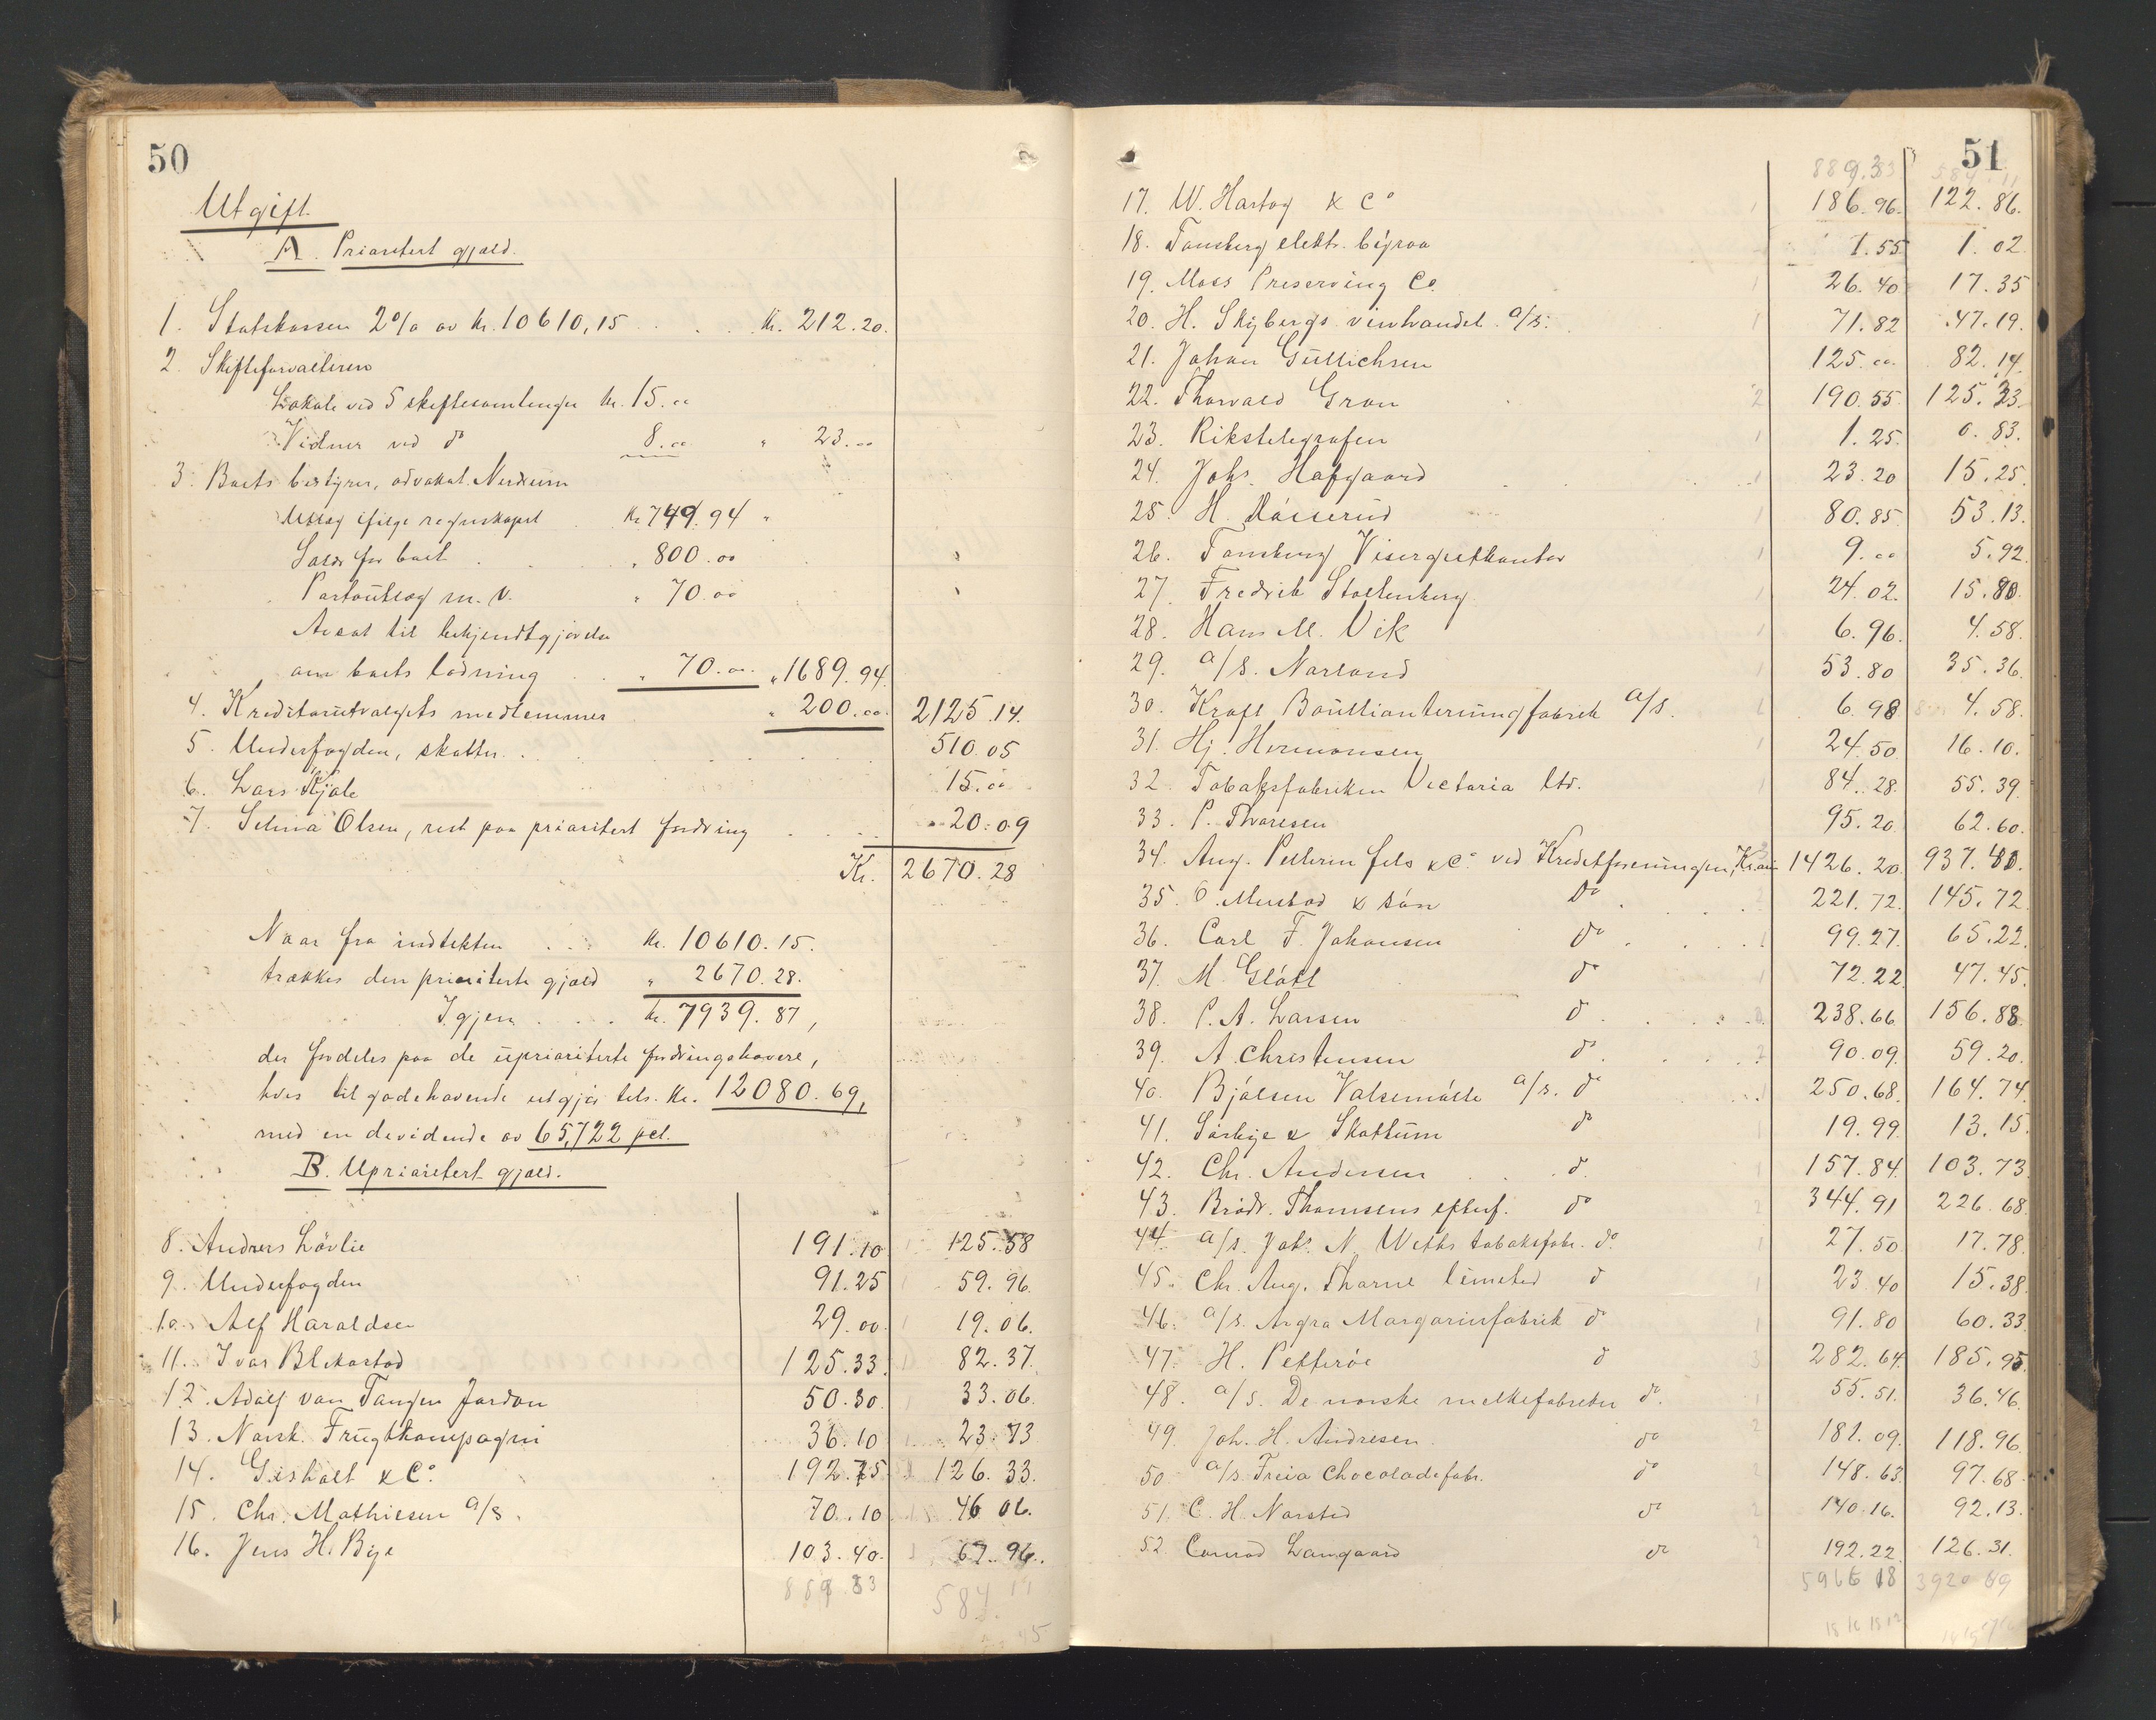 50
Utgift.
A. Prioritert gjæld.
1. Statskassen 2% av kr. 10610,15 . . . kr. 212.20.
2. Skifteforvalteren
Lokale ved 5 skiftesamlinger kr. 15.00
Vidner ved do 8.00 " 23.00
3. Boets bestyrer, advokat
Utlæg ifølge regnskapet kr. 749.94
Salær for boet . . . " 800.00
Portoutlæg m. v. " 70.00
Avsat til bekjendtgjørelse
om boets lodning " 70.00 " 1689.94
4. Kreditorutvalgets medlemmer " 200.00 2125.14.
5. Underfogden, skatter . . 510.05
6. Lars Kjøle 15.00
7. Selma Olsen, rest paa prioritert fordring . . . 20.09
Kr. 2670.28
Naar fra indtekten . . . kr. 10610.15.
trækkes den prioriterte gjæld " 2670.28.
Igjen . . . kr. 7939.87,
der fordeles paa de uprioriterte fordringshavere,
hvis tilgodehavende utgjør tils. kr. 12080.69,
med en dividende av 65,722 pct.
B. Uprioritert gjæld.
8. Anders Løvlie 191.10 125.58
9. Underfogden 91.25 59.96
10. Alf Haraldsen 29.00 19.06.
11. Ivar Blikastad 125.33 82.37.
12. Adolf van Tangen Jordan 50.30 33.06.
13. Norsk Frugtkompagni 36.10 23.73
14. Gisholt & Co. 192.25 126.33.
15. Chr. Mathiesen A/S. 70.10 46 06.
16. Jens H. Bye 103.40. 67.96.
889.33 584.11
51
889.33 584.11
17. W. Hartog & Co 186.96. 122.86.
18. Tønsberg elektr. byraa 1.55 1.02
19. Moss Preserving Co. 26.40 17.35
20. H. Skybergs vinhandel A/S. 71.82 47.19.
21. Johan Gullichsen 125.00 82.14.
22. Thorvald Gran 190.55 125.23.
23. Rikstelegrafen 1.25. 0.83.
24. Johs. Hafgaard 23.20 15.25.
25. H. 80.85 53.13.
26. Tønsberg Visergutkontor 9.00 5.92
27. Fredrik Stoltenberg 24.02. 15.80.
28. Hans M. Vik 6.96. 4.58.
29. A/S. Norland 53.80 35.36.
30. Kraft Bouillonterningfabrik A/S. 6.98 4.58.
31. Hj. Hermansen 24.50 16.10.
32. Tobaksfabriken Victoria Ltd. 84.28. 55.39.
33. P. Thoresen 95.20 62.60.
34. Aug. Pellerin fils & Co. ved Kreditforeningen, Kr.ania 1426.20. 937.40.
35. O. Mustad & søn Do 221.72. 145.72
36. Carl F. Johansen do 99.27. 65.22.
37. M. Gløtt do 72.22 47.45.
38. P. A. Larsen do 238.66 156.88.
39. A. Christensen do 90.09. 59.20.
40. Bjølsen Valsemølle A/S. do 250.68. 164.74.
41. Sørbye & Skattum do 19.99. 13.15.
42. Chr. Andersen do. 157.84. 103.73
43. Brødr. Thomsens efterf. do 344.91 226.68.
44. A/S. Johs. N. Weths tobaksfabr. do. 27.50 17.78.
45. Chr. Aug. Thorne limited do 23.40 15.38
46. A/S. Agra Margarinfabrik do 91.80 60.33
47. H. Petterøe do 282.64. 185.95.
48. A/S. De norske melkefabriker do. 55.51. 36.46.
49. Joh. H. Andresen do 181.09. 118.96.
50. A/S. Freia Chocoladefabr. do 148.63. 97.68.
51. C. H. Norsted do 140.16. 92.13.
52. Conrad Langaard do 192.22. 126.31.
5966 18 3920 69